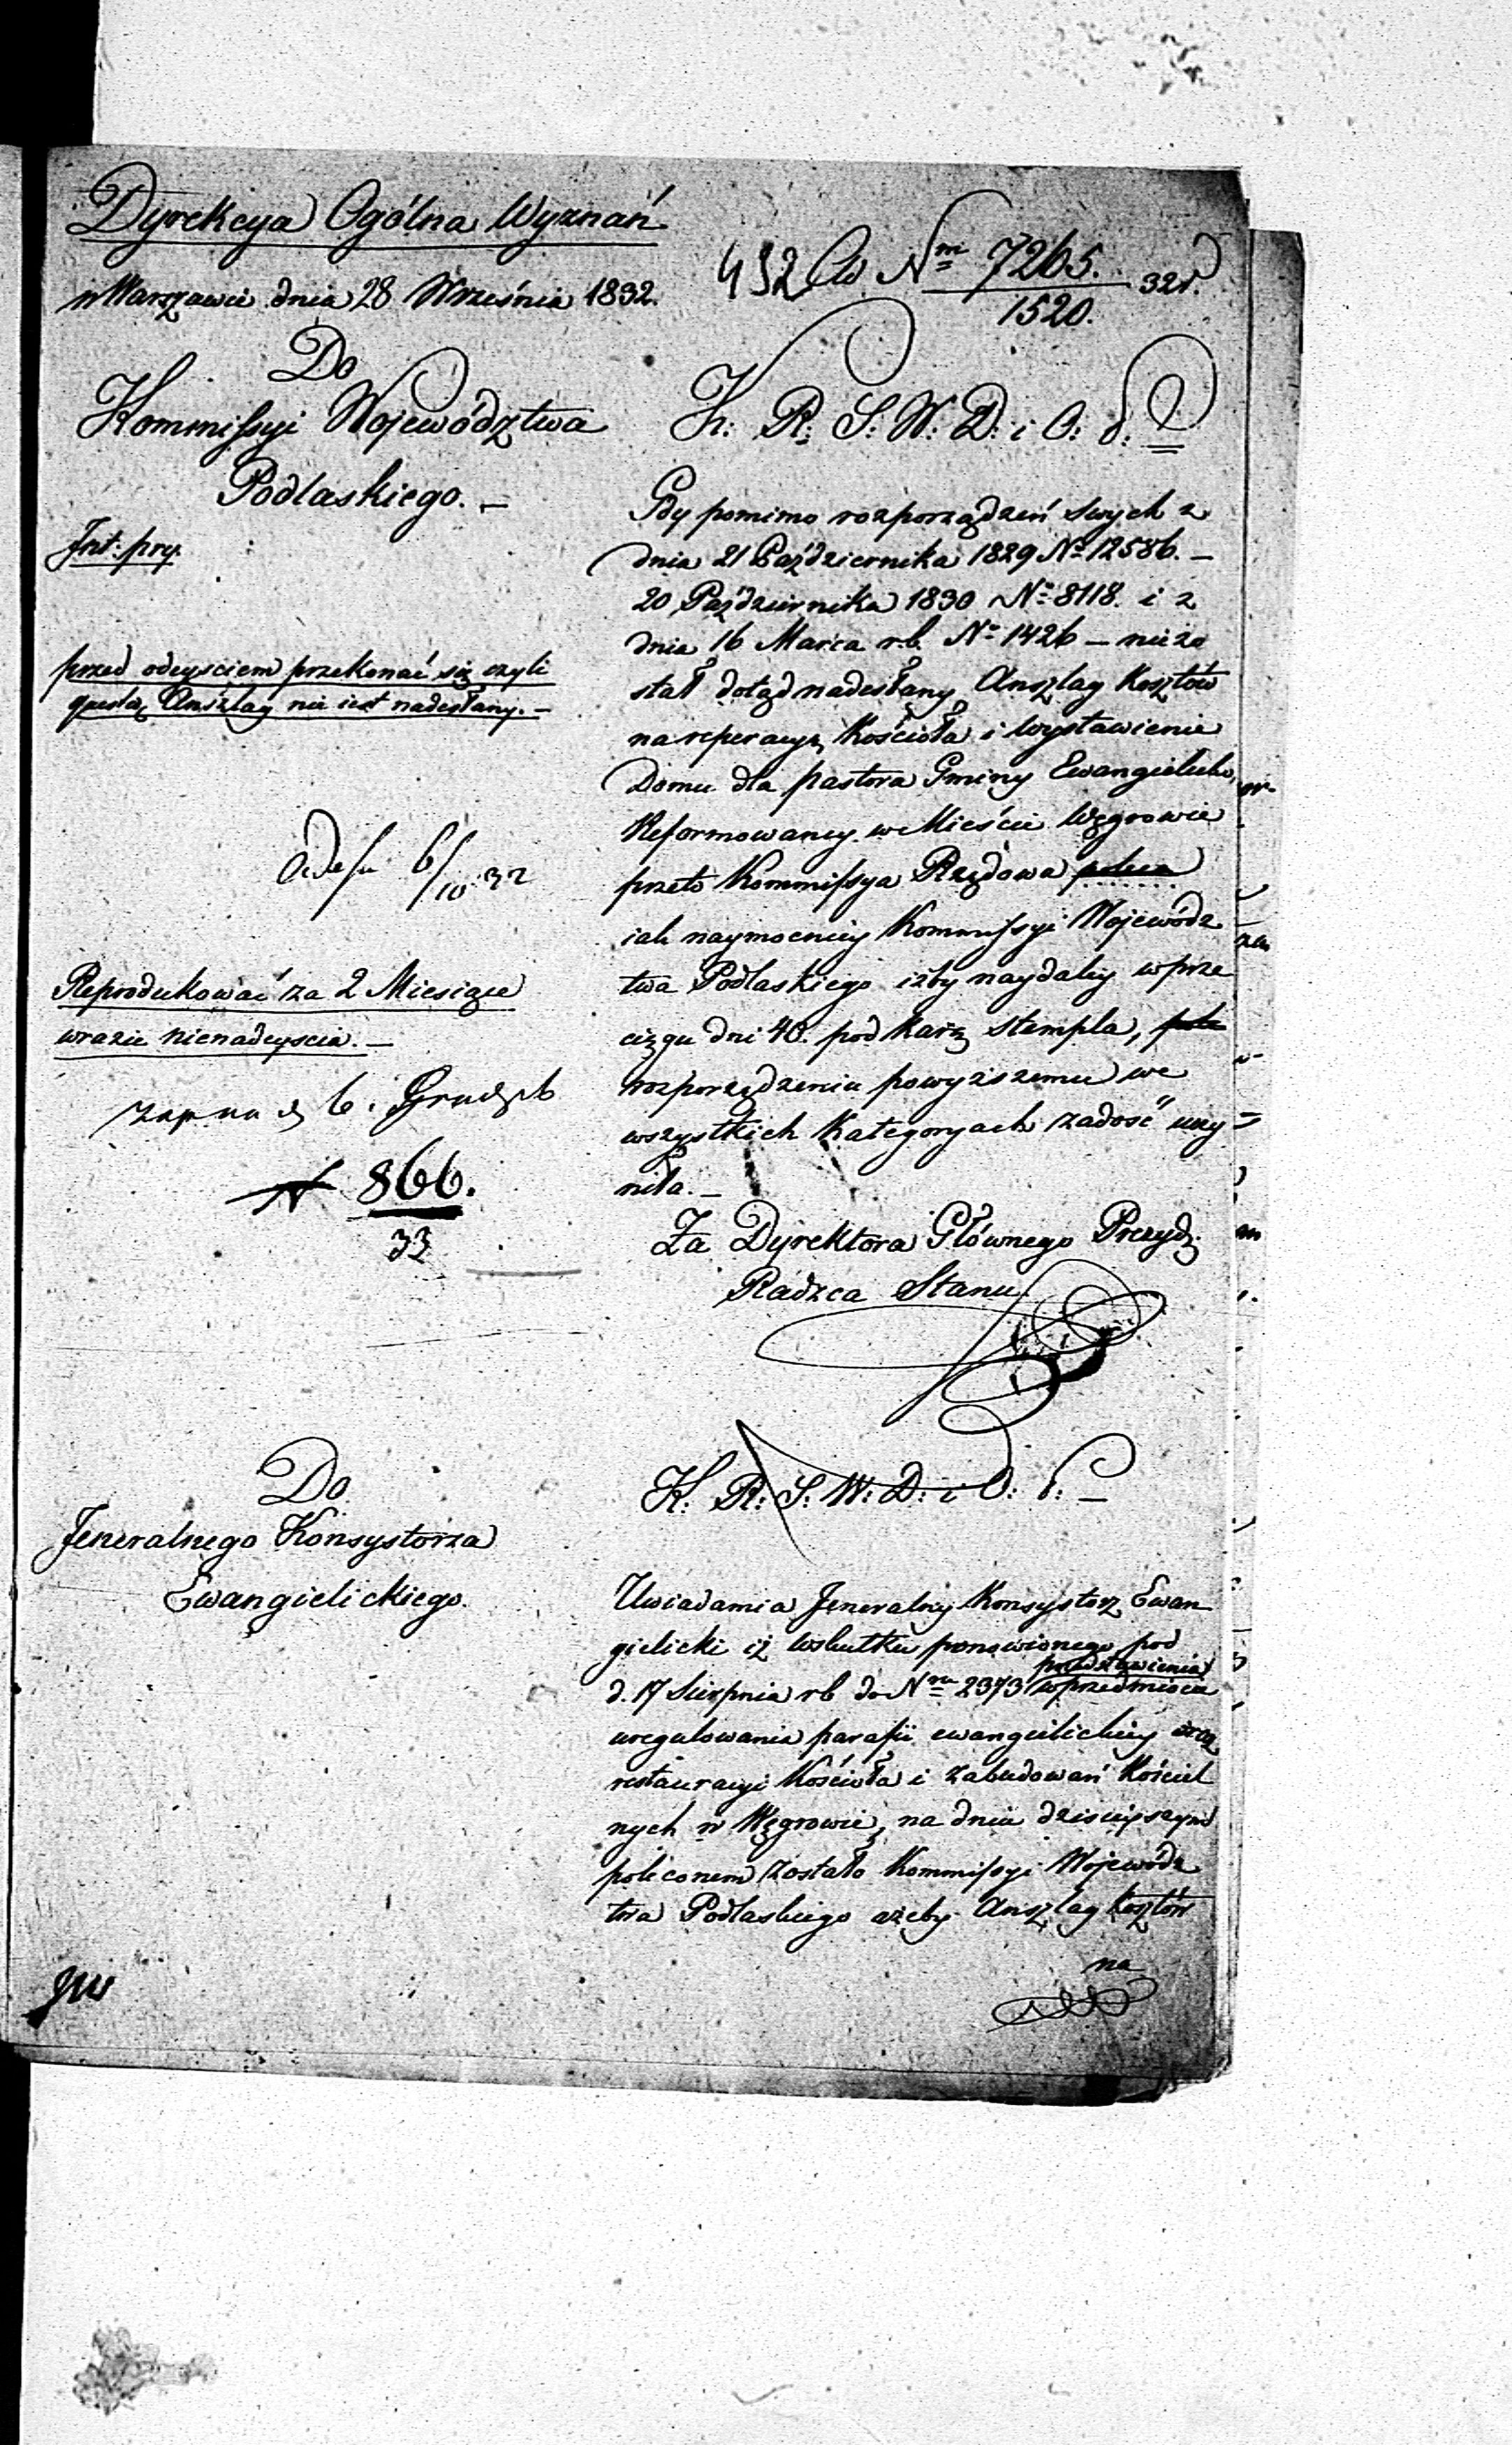 Dyrekcya Ogólna Wyznań
w Warszawie dnia 28 Września 1832.
432 Ad Nm 7265. 32 r.
1520.
Do
Kommissyi Województwa
Podlaskiego. —
Int: pry.
przed odeyściem przekonać się czyli
quest: Anszlag nie iest nadesłany. —
6/10 32
Reprodukować za 2 Miesiące
w razie nienadeyscia. —
6. Grudnia
N 866.
33
K: R: S: W: D: i O: P:
Gdy pomimo rozporządzeń swych z
dnia 21 Października 1829 No 12586. —
20 Października 1830 No 8118. i z
dnia 16 Marca r.b. No 1426 — nie zo
stał dotąd nadesłany Anszlag Kosztów
na reperacyą Kościoła i wystawienie
Domu dla pastora Gminy Ewangelicko
Reformowaney w Mieście Węgrowie
przeto Kommissya Rządowa poleca
iak naymocniey Kommissyi Wojewódz
twa Podlaskiego iżby naydaley w prze
ciągu dni 40. pod karą stempla,
rozporządzeniu powyższemu we
wszystkich Kategoryach zadość uczy
niła. —
Za Dyrektora Głównego Prezyd:
Radzca Stanu
Do
Jeneralnego Konsystorza
Ewangielickiego.
K: R: S: W: D: i O: P: —
Uwiadamia Jeneralny Konsystorz Ewan
gielicki iż wskutku ponowionego pod
przedstawienia
d. 17 Sierpnia rb do Nru 2373 w przedmiocie
uregulowania parafii ewangielickiey oraz
restauracyi Kościoła i zabudowań Kościel
nych w Węgrowie, na dniu dzisieyszym
poleconem zostało Kommissyi Wojewódz
twa Podlaskiego ażeby Anszlag kosztów
na